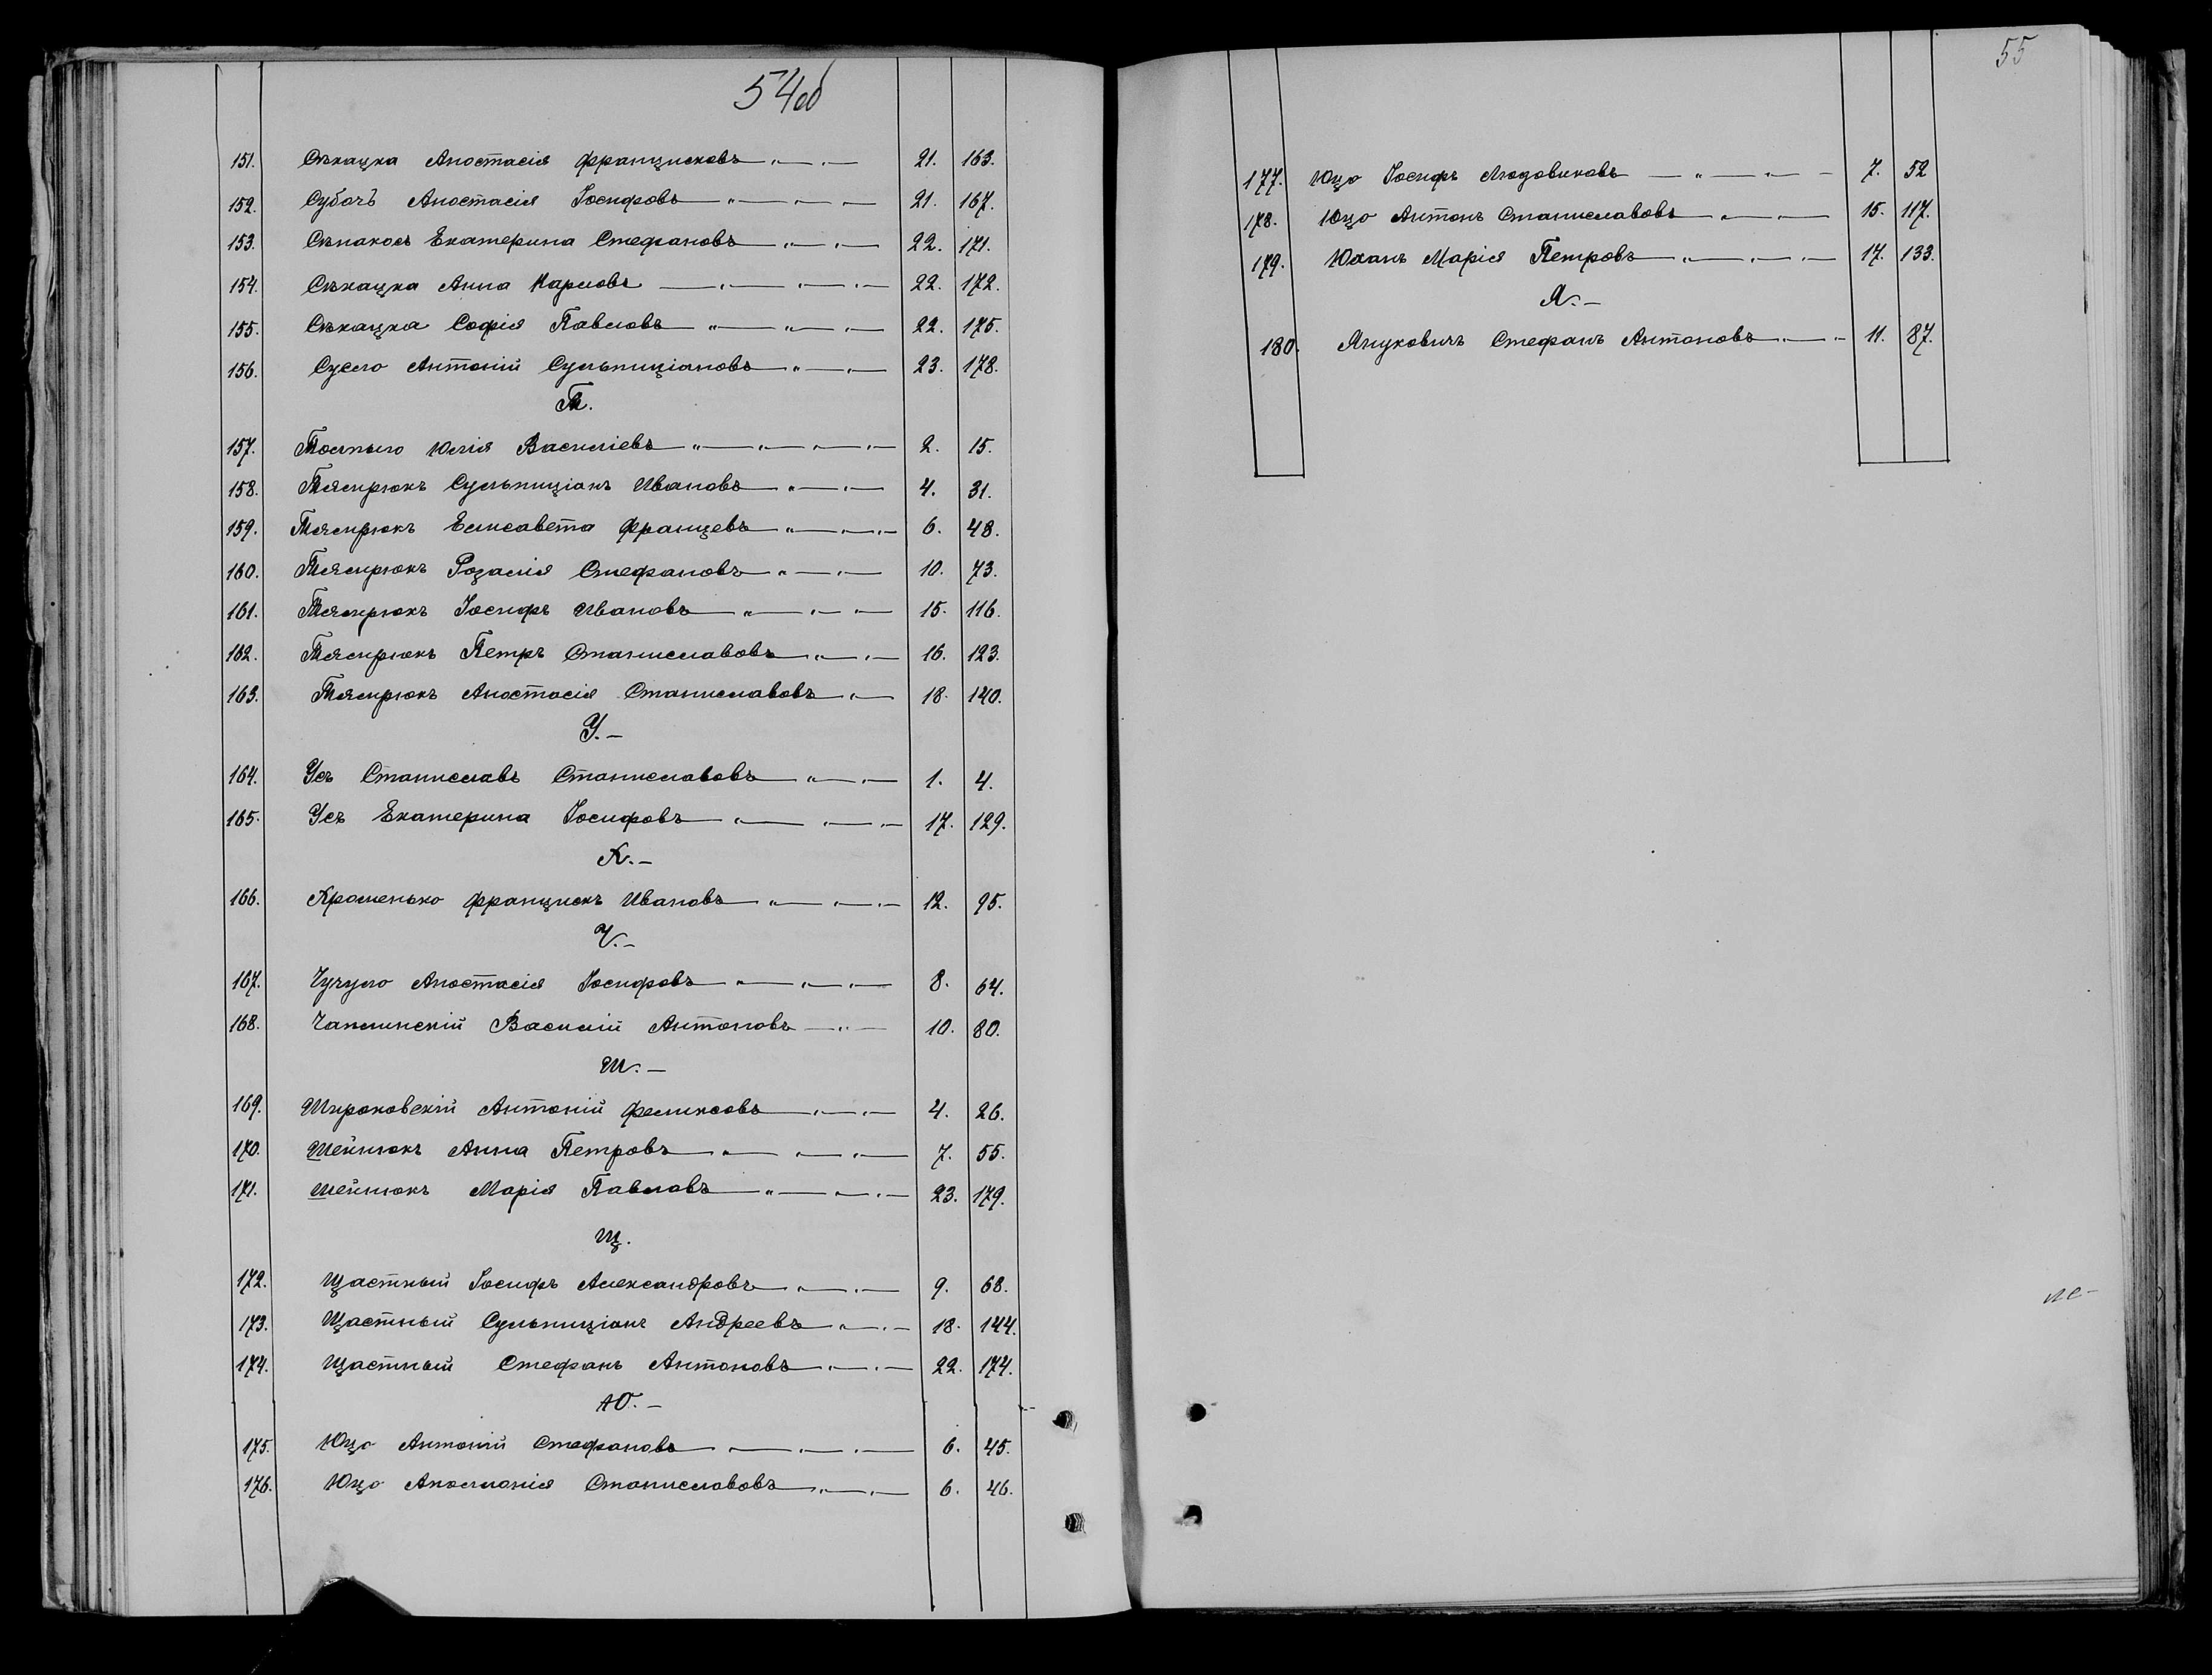 54об
151. Сѣкацка Анастасія Францисковъ 21. 163.
152. Субочъ Анастасія Іосифовъ 21. 167.
153. Сѣнакосъ Екатерина Стефановъ 22. 171.
154. Сѣкацка Анна Карловъ 22. 172.
155. Сѣкацка Софія Павловъ 22. 175.
156. Сусло Антоній Сульпиціановъ 23. 178.
Т.
157. Юлія Василіевъ 2. 15.
158. Сульпиціанъ Ивановъ 4. 31.
159. Елисавета Францевъ 6. 48.
160. Розалія Стефановъ 10. 73.
161. Іосифъ Ивановъ 15. 116.
162. Петръ Станиславовъ 16. 123.
163. Анастасія Станиславовъ 18. 140.
У.
164. Усъ Станиславъ Станиславовъ 1. 4.
165. Усъ Екатерина Іосифовъ 17. 129.
Х.
166. Хроменько Францискъ Ивановъ 12. 95.
Ч.
167. Чучуло Анастасія Іосифовъ 8. 64.
168. Чаплинскій Василій Антоновъ 10. 80.
Ш.
169. Широковскій Антоній Феликсовъ 4. 26.
170. Шейнюкъ Анна Петровъ 7. 55.
171. Шейнюкъ Марія Павловъ 23. 179.
Щ.
172. Щастный Іосифъ Александровъ 9. 68.
173. Щастный Сульпиціанъ Андреевъ 18. 144.
174. Щастный Стефанъ Антоновъ 22. 174.
Ю.
175. Юцо Антоній Стефановъ 6. 45.
176. Юцо Аполлонія Станиславовъ 6. 46.
55
177. Юцо Іосифъ Людовиковъ 7. 52
178. Юцо Антонъ Станиславовъ 15. 117.
179. Юханъ Марія Петровъ 17. 133.
Я.
180. Януковичъ Стефанъ Антоновъ 11. 87.